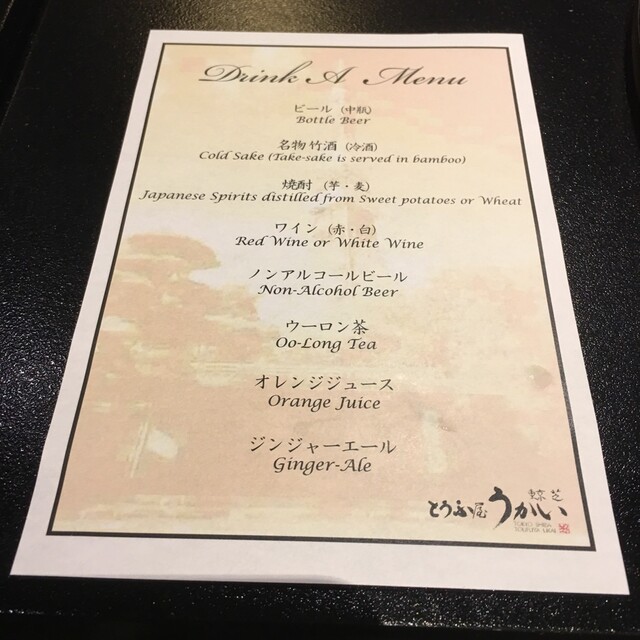 Drink A Menu
ビール（中瓶）
Bottle Beer
名物 竹酒（冷酒）
Cold Sake (Take-sake is served in bamboo)
焼酎（芋・麦）
Japanese Spirits distilled from Sweet potatoes or Wheat
ワイン（赤・白）
Red Wine or White Wine
ノンアルコールビール
Non-Alcohol Beer
ウーロン茶
Oo-Long Tea
オレンジジュース
Orange Juice
ジンジャーエール
Ginger-Ale
東京 芝
とうふ屋うかい
TOKYO SHIBA
TOFUYA UKAI